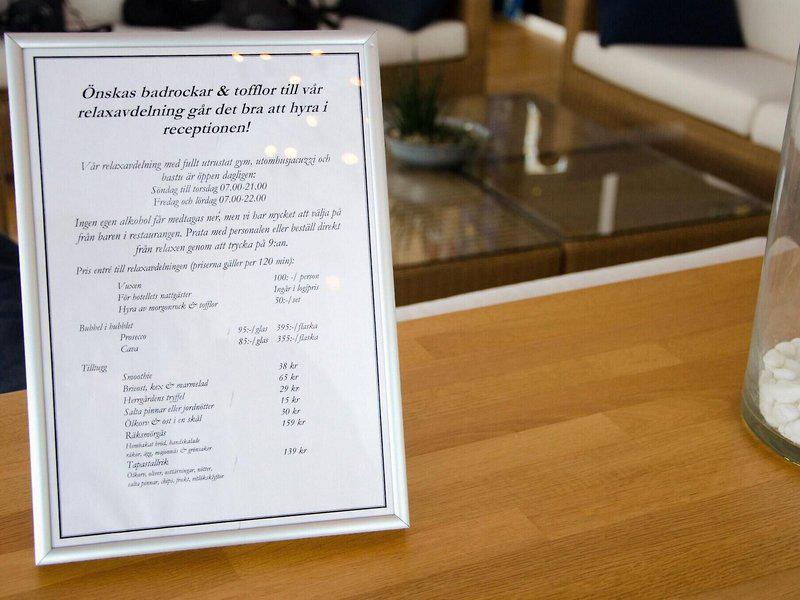 Önskas badrockar & tofflor till vår
relaxavdelning går det bra att hyra i
receptionen!
Vår relaxavdelning med fullt utrustat gym, utomhusjacuzzi och
bastu är öppen dagligen:
Söndag till torsdag 07.00-21.00
Fredag och lördag 07.00-22.00
Ingen egen alkohol får medtagas ner, men vi har mycket att välja på
från baren i restaurangen. Prata med personalen eller beställ direkt
från relaxen genom att trycka på 9:an.
Pris entré till relaxavdelningen (priserna gäller per 120 min):
Vuxen 100: -/ person
För hotellets nattgäster Ingår i logipris
Hyra av morgonrock & tofflor 50:-/ set
Bubbel i bubblet
Prosecco 95:-/glas 395:-/flaska
Cava 85:-/glas 355:-/flaska
Tilltugg
Smoothie 38 kr
Brieost, kex & marmelad 65 kr
Herrgårdens tryffel 29 kr
Salta pinnar eller jordnötter 15 kr
Ölkorv & ost i en skål 30 kr
Räksmörgås 159 kr
Hembakat bröd, handskalade
räkor, ägg, majonnäs & grönsaker
Tapastallrik 139 kr
Ölkorv, oliver, osttärningar, nötter,
salta pinnar, chips, frukt, vitlöksklyftor